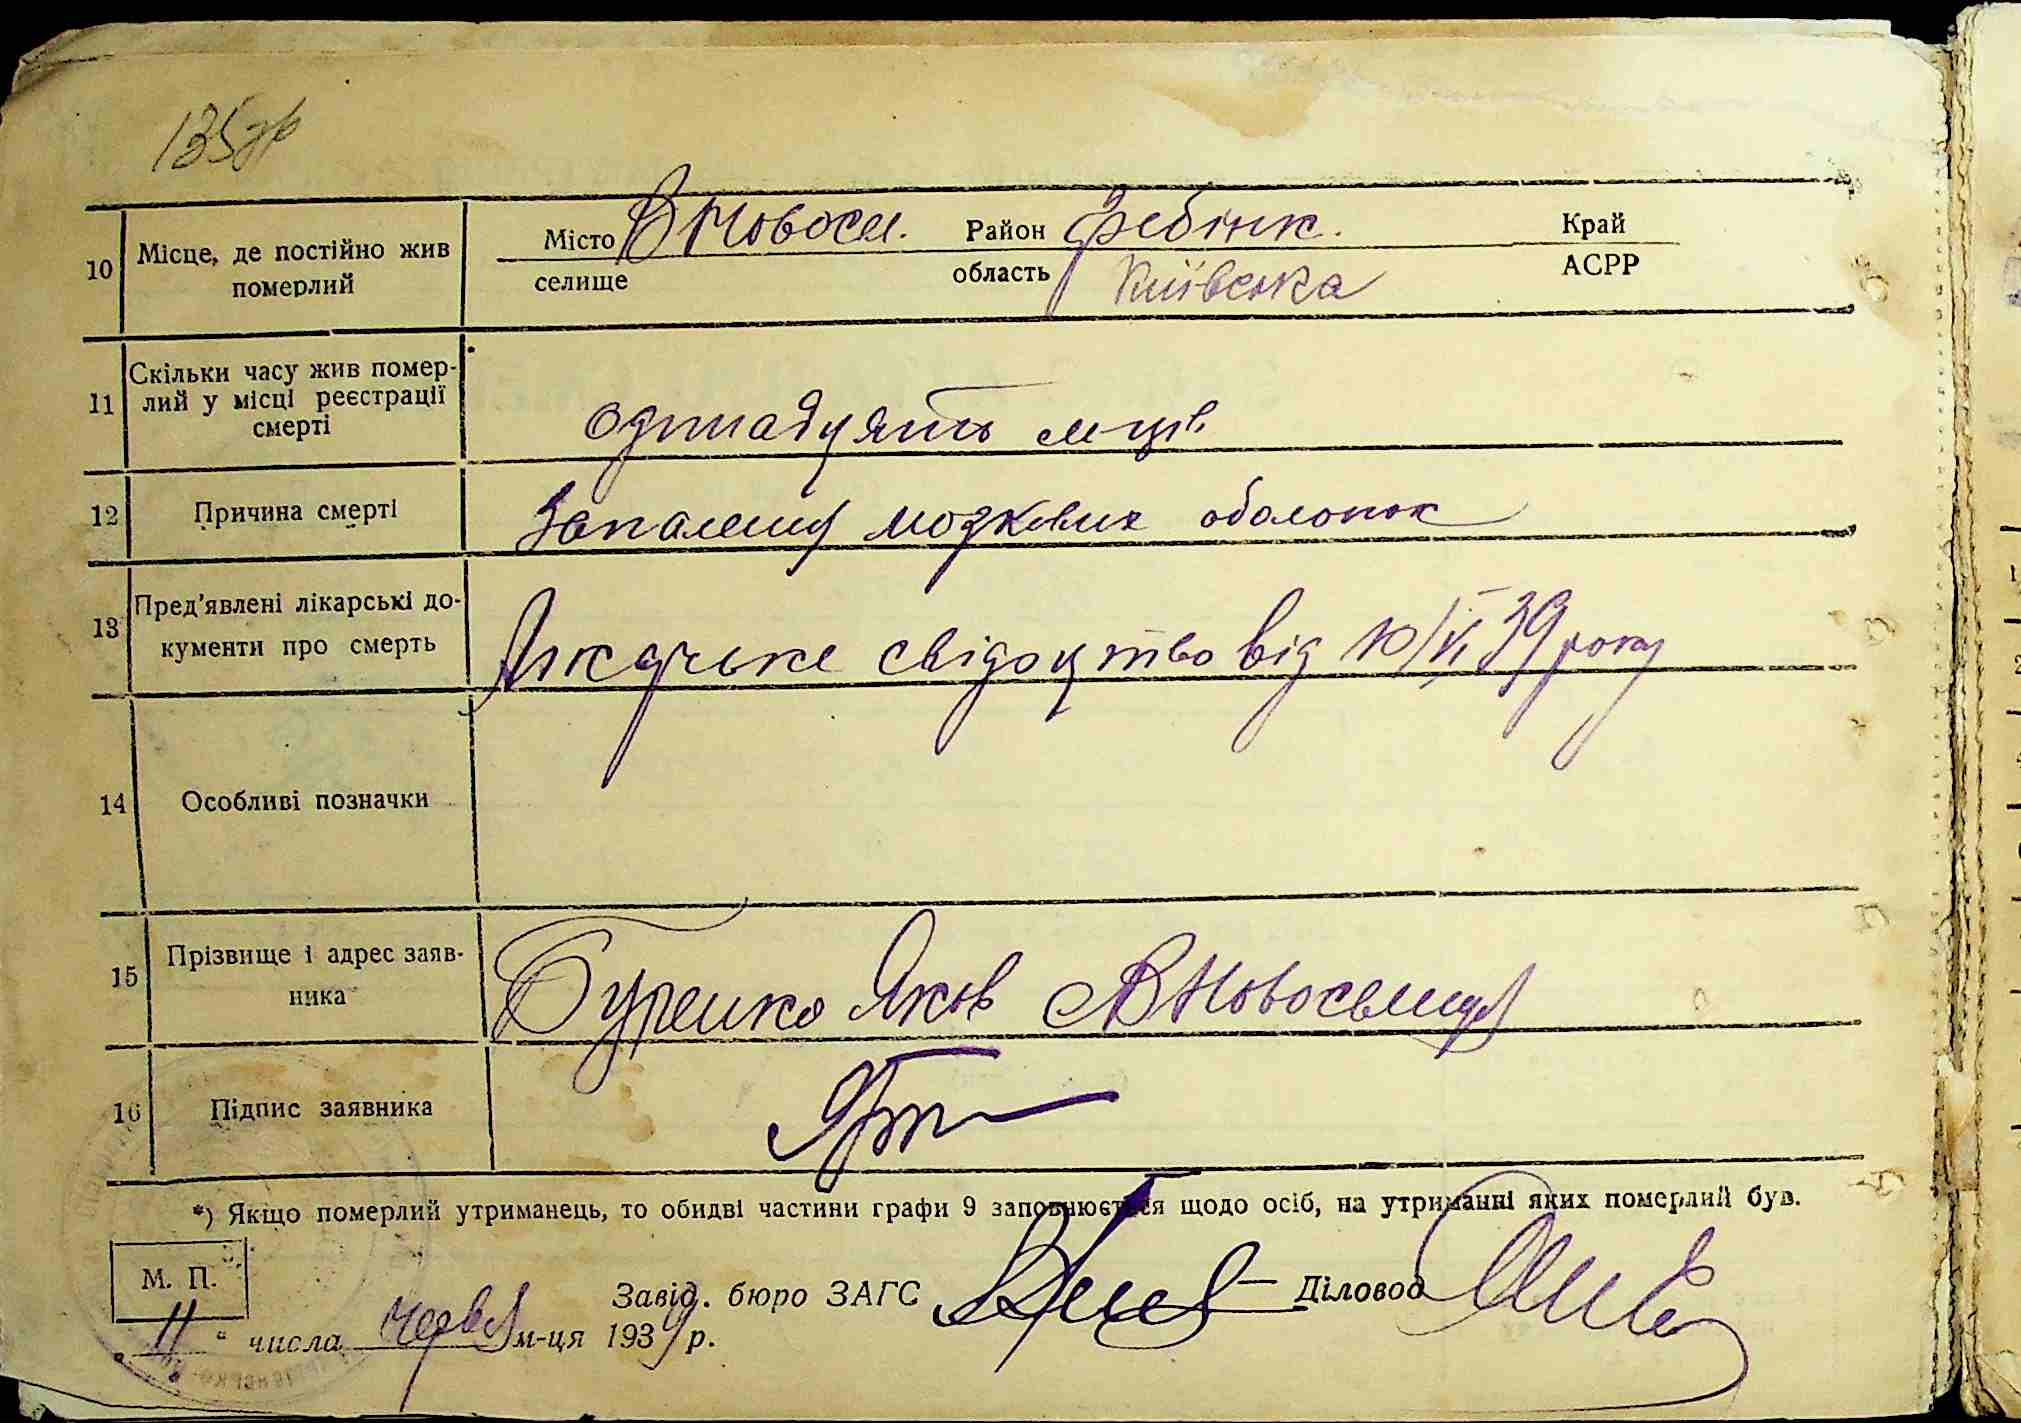 135зв
10 Місце, де постійно жив померлий
Місто В Новосел. Район Гребінк. Край
селище область Київська АСРР
11 Скільки часу жив помер-
лий у місці реєстрації
смерті
одинадцять м-ців
12 Причина смерті Запалення мозкових оболонок
13 Пред'явлені лікарські до-
кументи про смерть
Лікарське свідоцтво від 10/VI 39 року
14 Особливі позначки
15 Прізвище і адрес заяв-
ника
Буренко Яков В Новоселиця
16 Підпис заявника
*) Якщо померлий утриманець, то обидві частини графи 9 заповнюється щодо осіб, на утриманні яких померлий був.
М. П.
Завід. бюро ЗАГС Діловод
„11“ числа червня м-ця 1939 р.